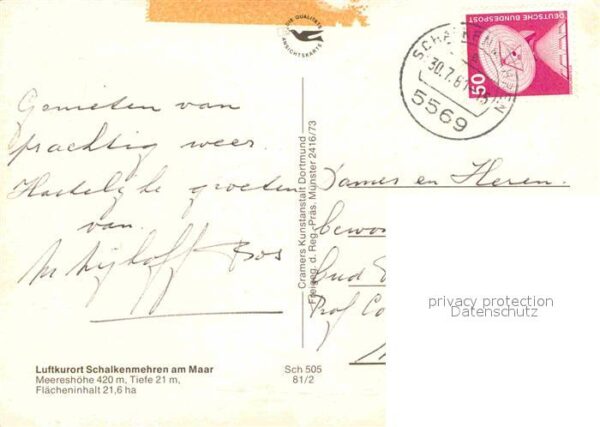 DIE QUALITÄTS
ANSICHTSKARTE
SCHALKENMEHREN
30.7.81
5569
DEUTSCHE BUNDESPOST
50
Genieten van
prachtig weer
Hartelijke groeten
van
Bos
Cramers Kunstanstalt Dortmund
Freigeg. d. Reg.-Präs. Münster 2416/73
Dames en Heren
bewo
Oud
Prof Co
privacy protection
Datenschutz
Luftkurort Schalkenmehren am Maar
Meereshöhe 420 m, Tiefe 21 m,
Flächeninhalt 21,6 ha
Sch 505
81/2